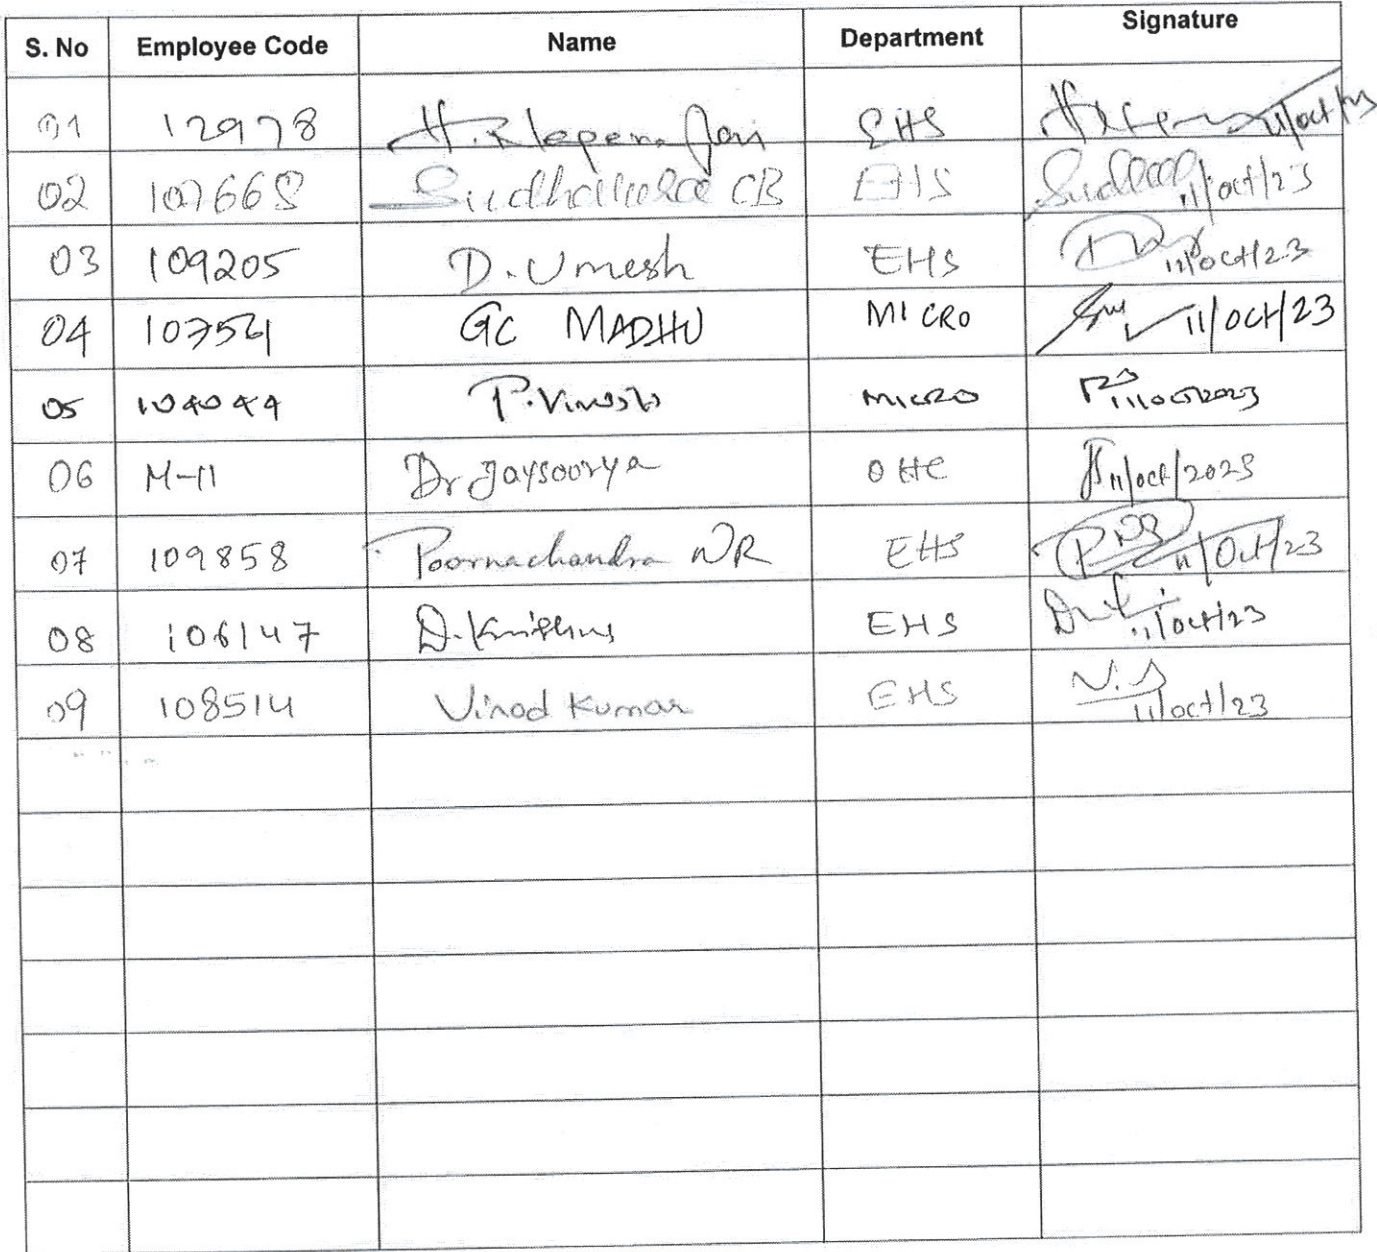 S. No Employee Code Name Department Signature
01 12978 EHS 11/oct/23
02 107668 CB EHS 11/oct/23
03 109205 D. Umesh EHS 11/oct/23
04 107561 GC MADHU MICRO 11/oct/23
05 104044 P. MICRO 11/OCT/2023
06 M-11 Dr Jaysoorya OHC 11/oct/2023
07 109858 Poornachandra NR EHS 11/Oct/23
08 106147 D. EHS 11/oct/23
09 108514 Vinod Kumar EHS 11/oct/23